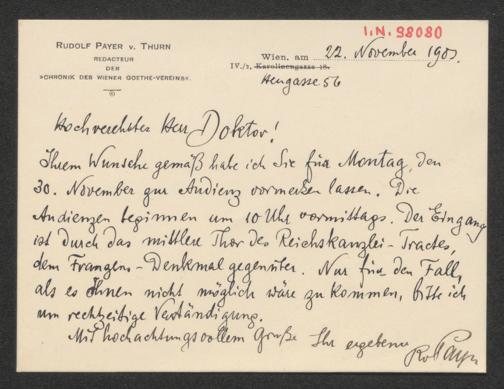 I.N. 98080
RUDOLF PAYER V. THURN
REDACTEUR
DER
»CHRONIK DES WIENER GOETHE-VEREINS«.
Wien, am 22. November 190
IV./1, Karolinengasse 18.
Heugasse 56
Hochverehrter Herr Doktor!
Ihrem Wunsche gemäß habe ich Sie für Montag, den
30. November zur Audienz vormerken lassen. Die
Audienzen beginnen um 10 Uhr vormittags. Der Eingang
ist durch das mittlere Thor des Reichskanzlei-Tractes,
dem Franzens-Denkmal gegenüber. Nur für den Fall,
als es Ihnen nicht möglich wäre zu kommen, bitte ich
um rechtzeitige Verständigung.
Mit hochachtungsvollem Gruße Ihr ergebener
RvPayer